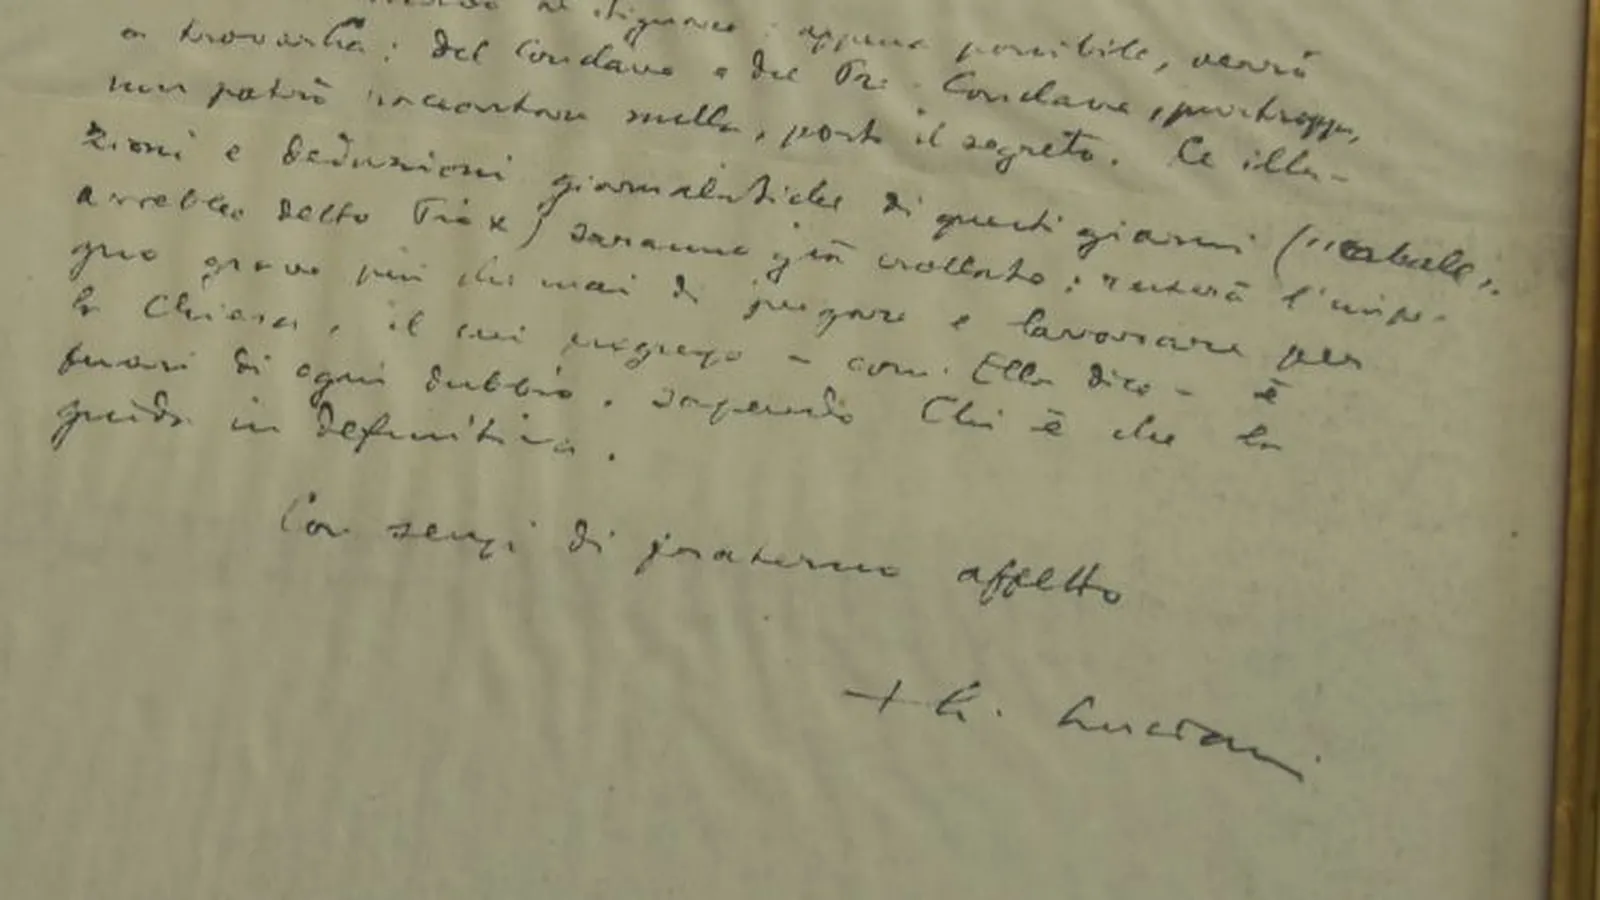 appena possibile, verrò
a trovarla. Del Conclave e del Pre Conclave, purtroppo,
non potrò raccontare nulla, posto il segreto. Le illa-
zioni e deduzioni giornalistiche di questi giorni ("cabale",
avrebbe detto Pio X) saranno già crollate; resterà l'impe-
gno grave più che mai di pregare e lavorare per
la Chiesa, il cui - com. Ella dice - è
fuori di ogni dubbio, sapendo Chi è che la
guida in definitiva.
Con sensi di fraterno affetto
+ A. Luciani